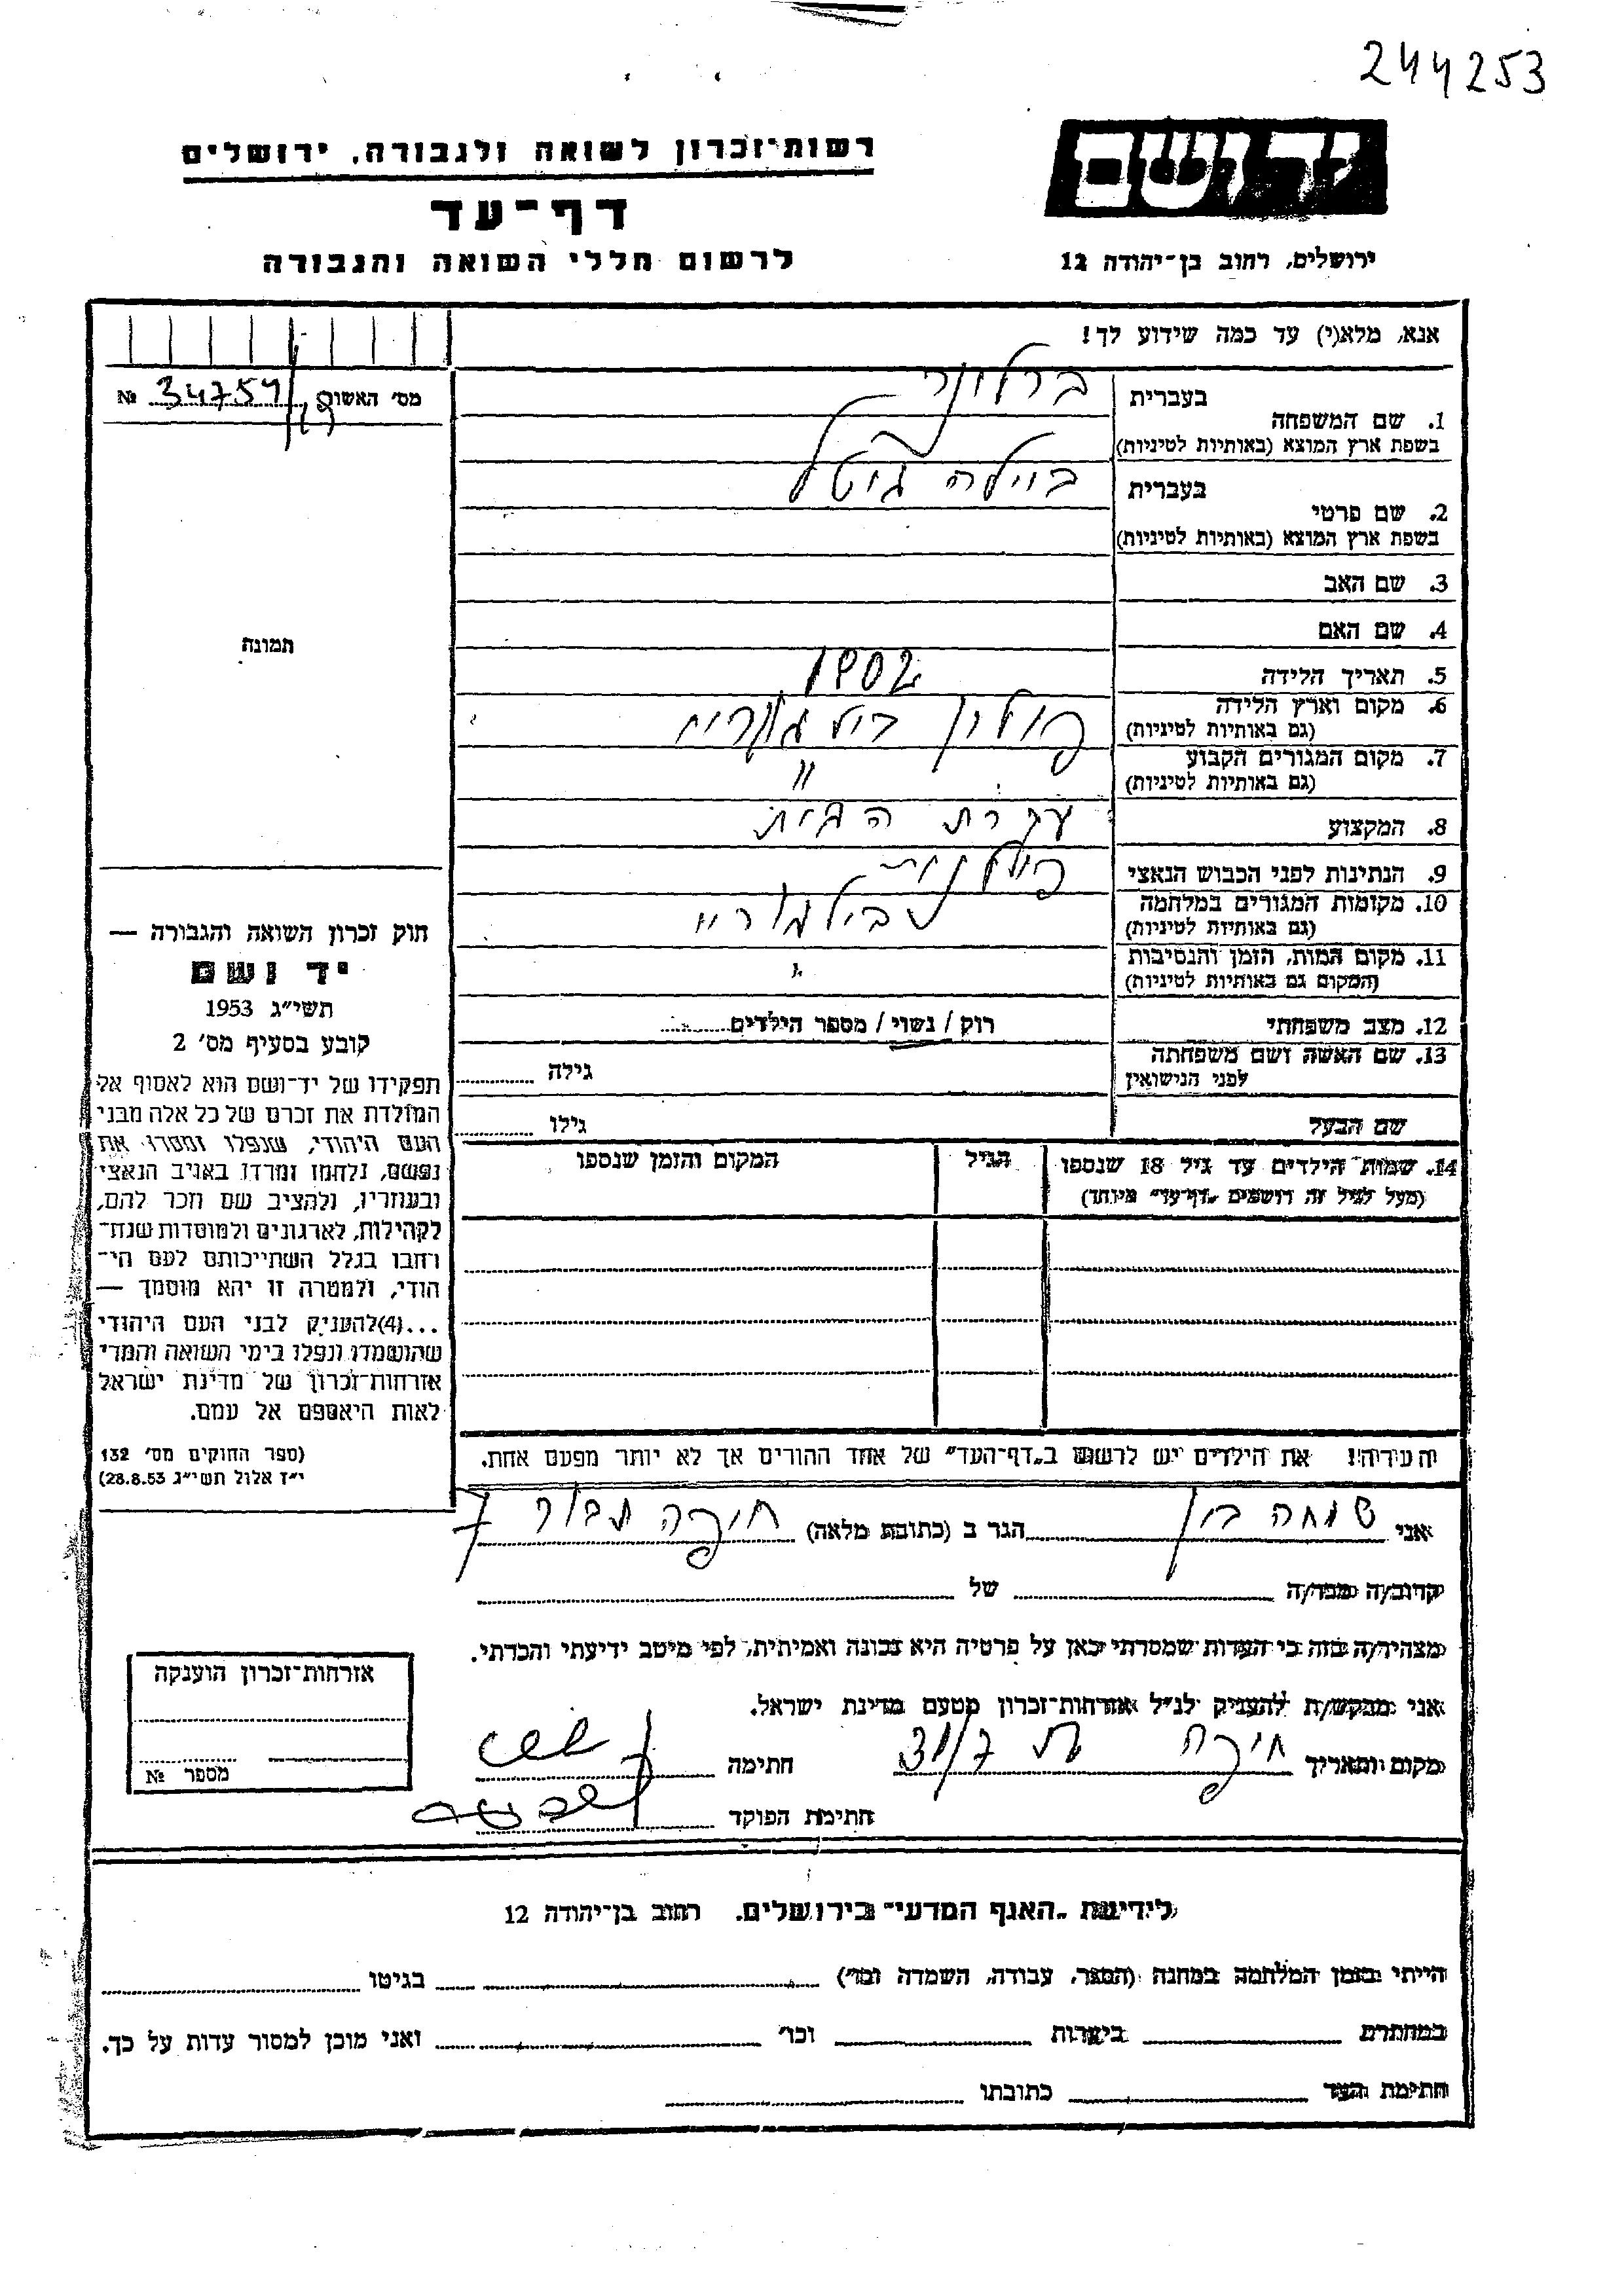 244253
יד ושם
רשות־זכרון לשואה ולגבורה, ירושלים
דף־עד
לרשום חללי השואה והגבורה
ירושלים, רחוב בן־יהודה 12
אנא, מלא(י) עד כמה שידוע לך!
מס׳ האשון 34759 №
1. שם המשפחה בעברית
בשפת ארץ המוצא (באותיות לטיניות)
2. שם פרטי בעברית ביילה גיטל
בשפת ארץ המוצא (באותיות לטיניות)
3. שם האב
4. שם האם
תמונה
5. תאריך הלידה 1902
6. מקום וארץ הלידה פולין
(גם באותיות לטיניות)
7. מקום המגורים הקבוע "
(גם באותיות לטיניות)
8. המקצוע עקרת הבית
9. הנתינות לפני הכבוש הנאצי פולנית
10. מקומות המגורים במלחמה
(גם באותיות לטיניות)
11. מקום המות, הזמן והנסיבות "
(המקום גם באותיות לטיניות)
12. מצב משפחתי רוק / נשוי / מספר הילדים
13. שם האשה ושם משפחתה גילה
לפני הנישואין
שם הבעל גילו
14. שמות הילדים עד גיל 18 שנספו הגיל המקום והזמן שנספו
(מעל לגיל זה רושמים „דף־עד" מיוחד)
חוק זכרון השואה והגבורה —
יד ושם
תשי״ג 1953
קובע בסעיף מס׳ 2
תפקידו של יד־ושם הוא לאסוף אל
המולדת את זכרם של כל אלה מבני
העם היהודי, שנפלו ומסרו את
נפשם, נלחמו ומרדו באויב הנאצי
ובעוזריו, ולהציב שם וזכר להם,
לקהילות, לארגונים ולמוסדות שנח־
רבו בגלל השתייכותם לעם הי־
הודי, ולמטרה זו יהא מוסמך —
...(4)להעניק לבני העם היהודי
שהושמדו ונפלו בימי השואה והמרי
אזרחות־זכרון של מדינת ישראל
לאות היאספם אל עמם.
(ספר החוקים מס׳ 132
י״ז אלול תשי״ג 28.8.53)
הערה! את הילדים יש לרשום ב„דף־העד" של אחד ההורים אך לא יותר מפעם אחת.
אני שמחה בן הגר ב (כתובת מלאה) חיפה תבור 7
קרוב/ה מכר/ה של
מצהיר/ה בזה כי העדות שמסרתי כאן על פרטיה היא נכונה ואמיתית, לפי מיטב ידיעתי והכרתי.
אני מבקש/ת להעניק לנ״ל אזרחות־זכרון מטעם מדינת ישראל.
מקום ותאריך חיפה חתימה
חתימת הפוקד
אזרחות־זכרון הוענקה
מספר №
לידיעת „האגף המדעי" בירושלים, רחוב בן־יהודה 12
הייתי בזמן המלחמה במחנה (הסגר, עבודה, השמדה וכו׳) בגיטו
במחתרת ביערות וכו׳ ואני מוכן למסור עדות על כך.
חתימת העד כתובתו